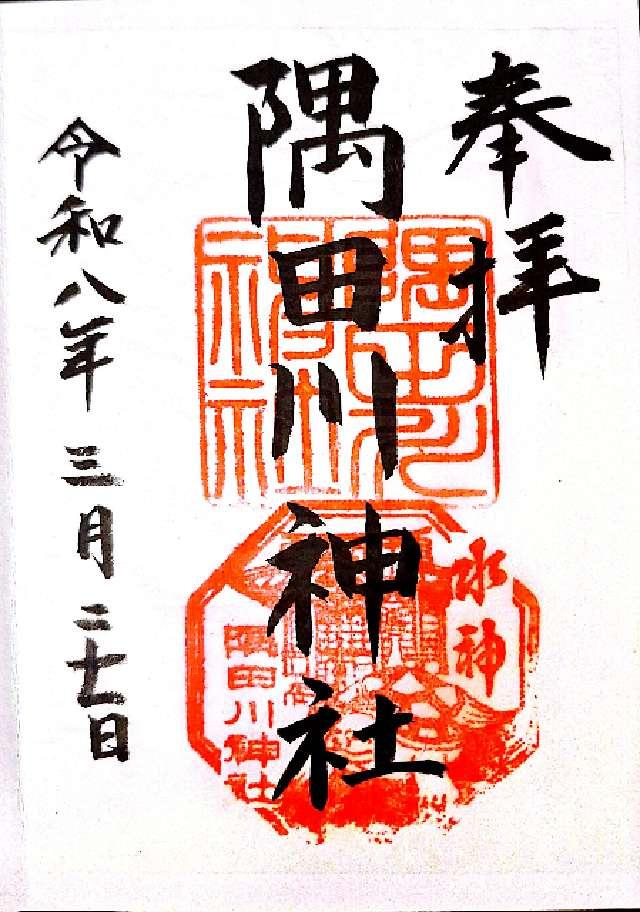 奉拝
隅田川神社
水神
隅田川神社
令和八年三月二十一日